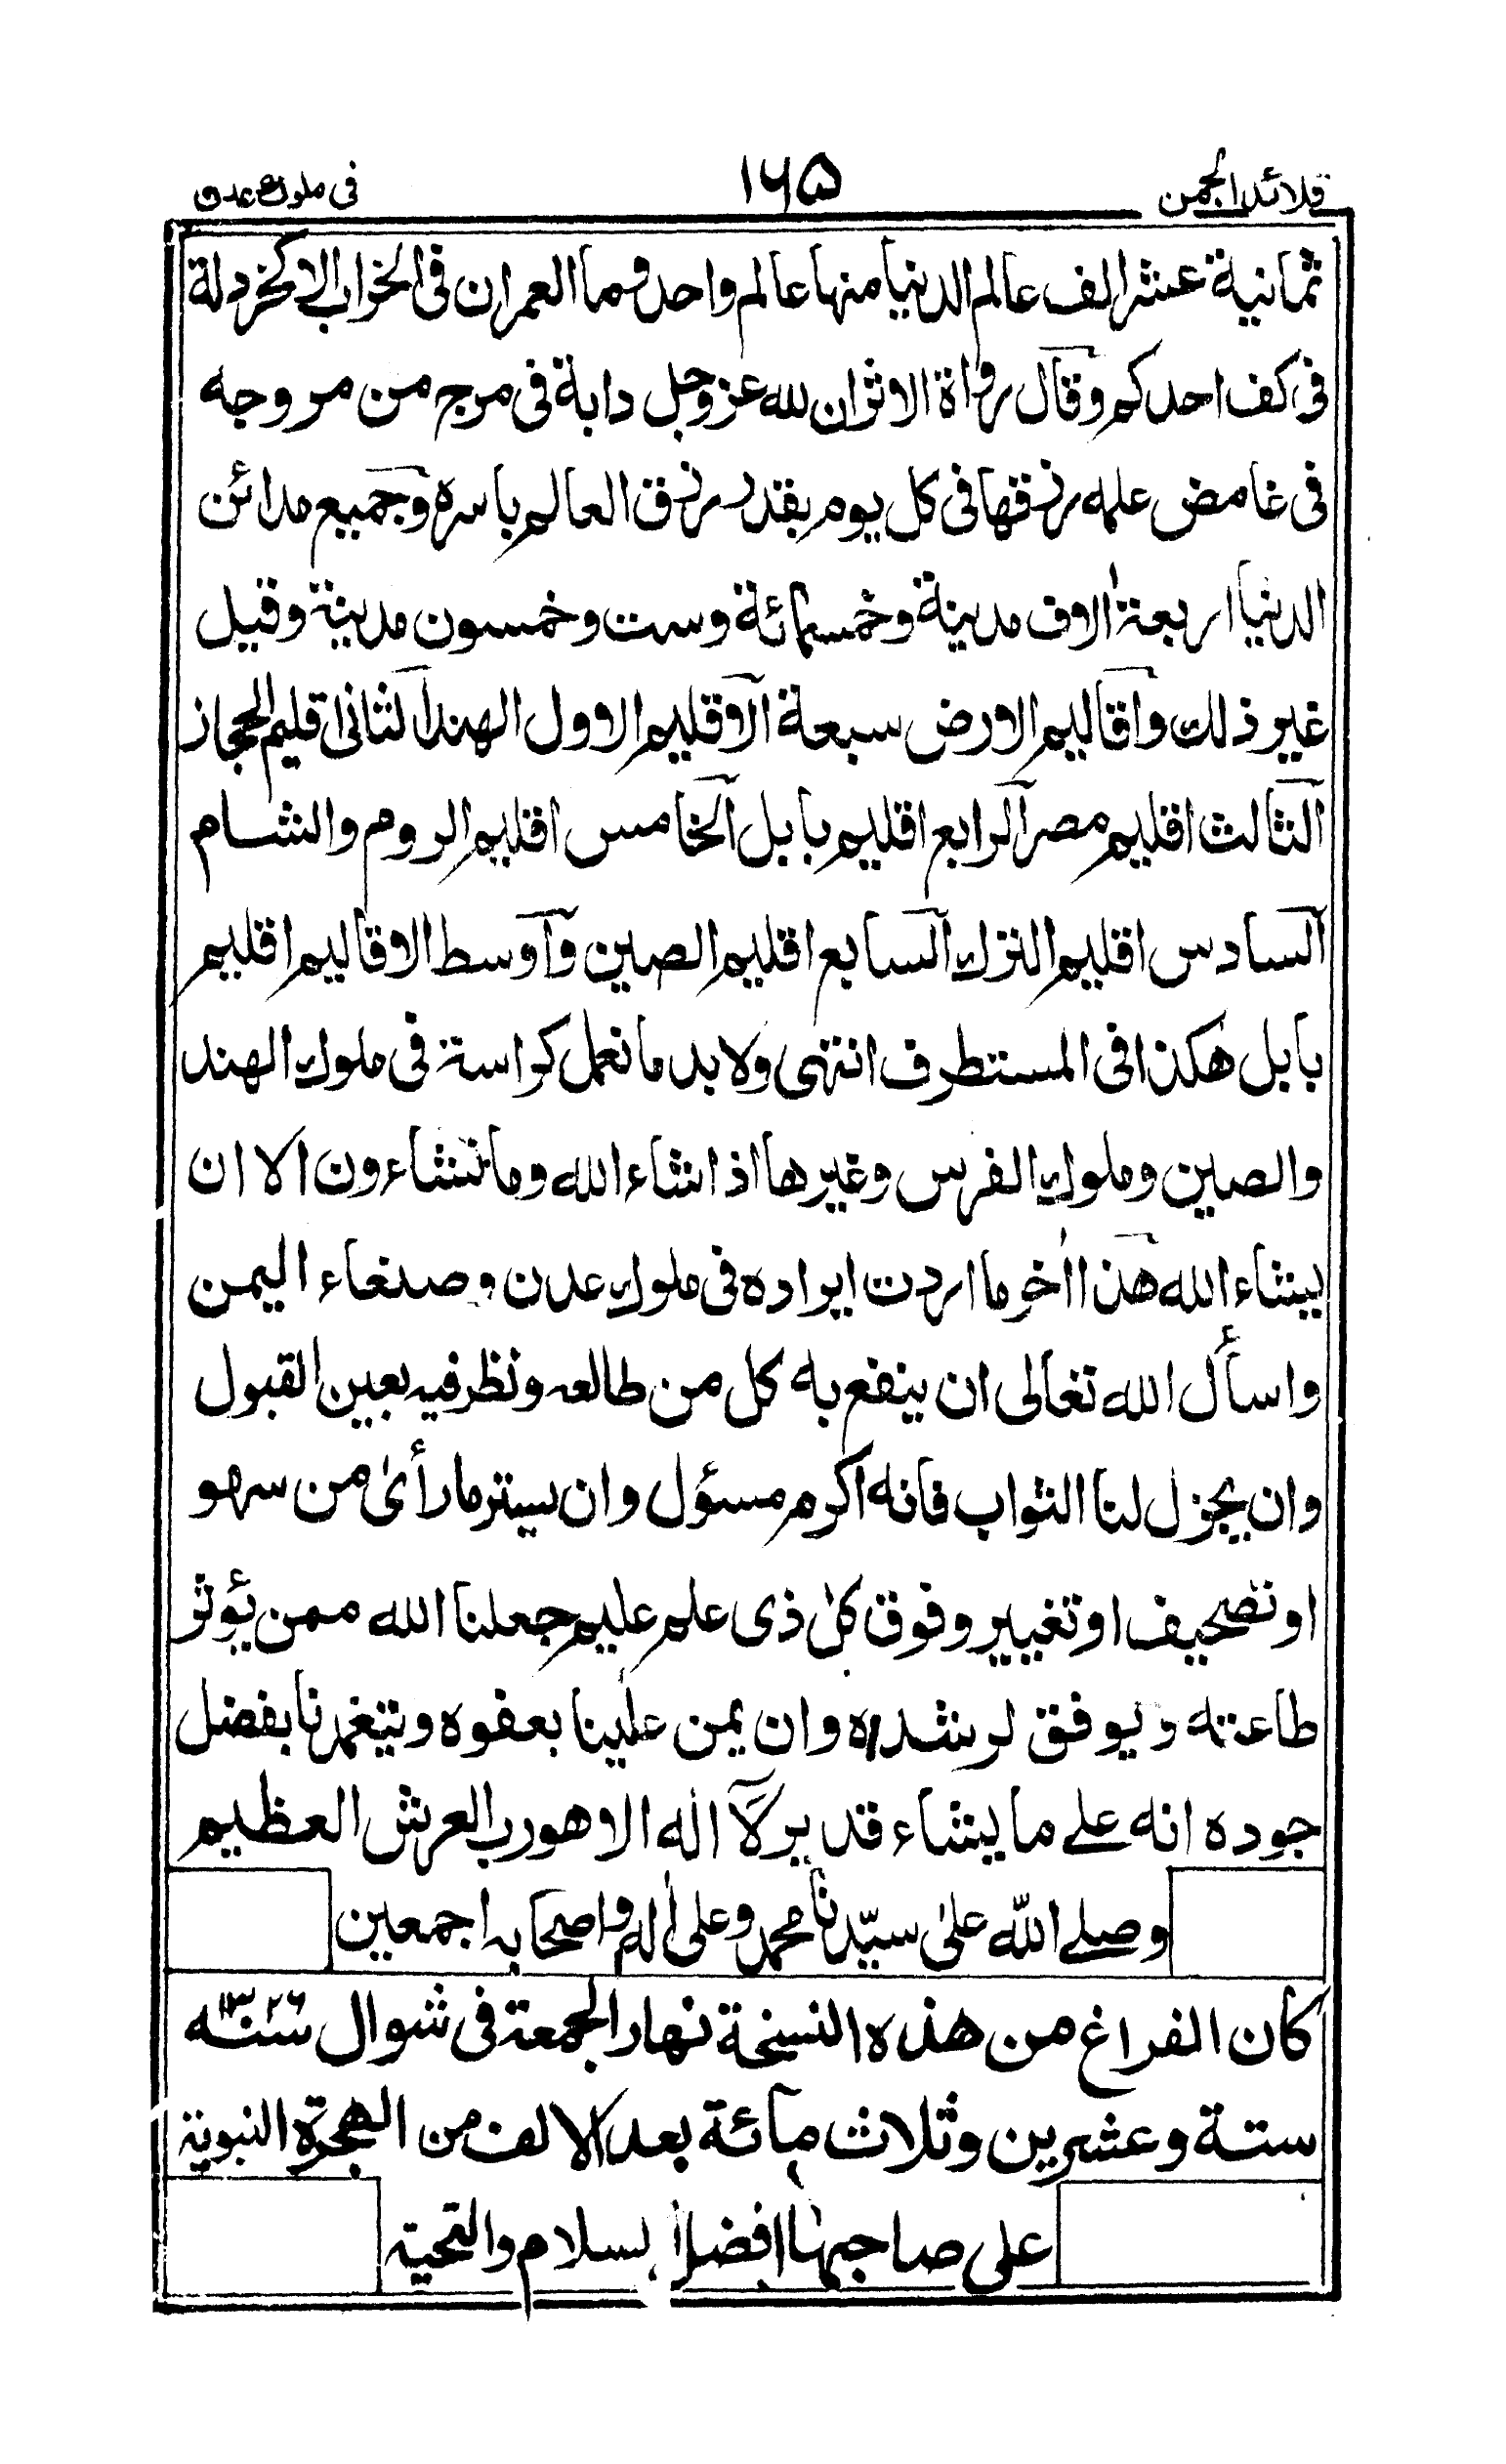 قلائد الجمن ١٦٥ فى ملوك عدن
ثمانية عشر الف عالم الدنيا منها عالم واحد وما العمران فى الخراب الا كخردلة
فى كف احدكم وقال رواة الاثر ان لله عز وجل دابة فى مرج من مروجه
فى غامض علمه رزقها فى كل يوم بقدر رزق العالم باسره وجميع مدائن
الدنيا اربعة الاف مدينة وخمسمائة وست وخمسون مدينة وقيل
غير ذلك واقاليم الارض سبعة الاقليم الاول الهند الثانى اقليم الحجاز
الثالث اقليم مصر الرابع اقليم بابل الخامس اقليم الروم والشام
السادس اقليم الترك السابع اقليم الصين واوسط الاقاليم اقليم
بابل هكذا فى المستطرف انتهى ولابد ما نعمل كراسة فى ملوك الهند
والصين وملوك الفرس وغيرها اذا شاء الله وما تشاءون الا ان
يشاء الله هذا اٰخر ما اردت ايراده فى ملوك عدن وصنعاء اليمن
واسأل الله تعالى ان ينفع به كل من طالعه ونظر فيه بعين القبول
وان يجزل لنا الثواب فانه اكرم مسؤل وان يستر ما رأىٰ من سهو
او تصحيف او تغيير وفوق كل ذى علم عليم جعلنا الله ممن يؤثر
طاعته ويوفق لرشده وان يمن علينا بعفوه ويتغمدنا بفضل
جوده انه على ما يشاء قدير لآ اله الا هو رب العرش العظيم
وصلے اللّٰه علىٰ سيّدنا محمد وعلىٰ اٰله واصحابه اجمعين
كان الفراغ من هذه النسخة نهار الجمعة فى شوال سنه ١٣٢٦
ستة وعشرين وثلاث مآئة بعد الالف من الهجرة النبوية
على صاحبها افضل السلام والتحية